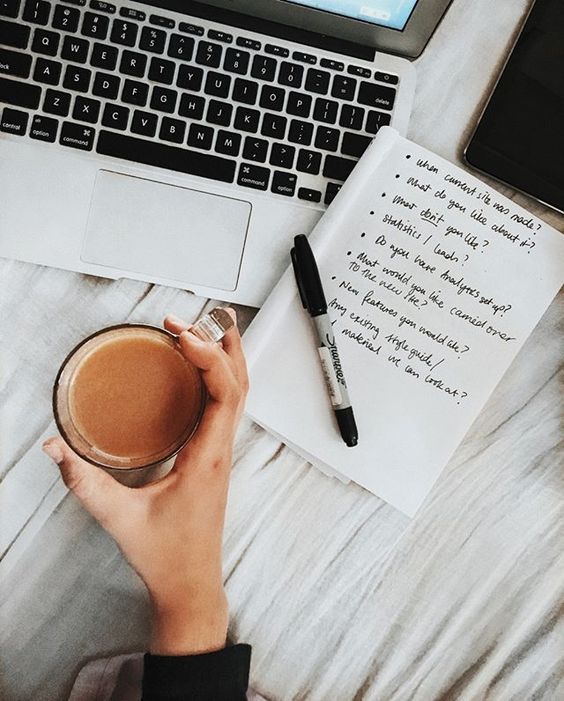 1 2 3 4 5 6 7 8 9 0 delete
Q W E R T Y U I O P
A S D F G H J K L
Z X C V B N M
control option command command option
• when current site was made?
• what do you like about it?
• what don't you like?
• statistics / leads?
• Do you have Analytics set up?
• what would you like carried over
to the new site?
• New features you would like?
Any existing style guide/
material we can look at?
Sharpie